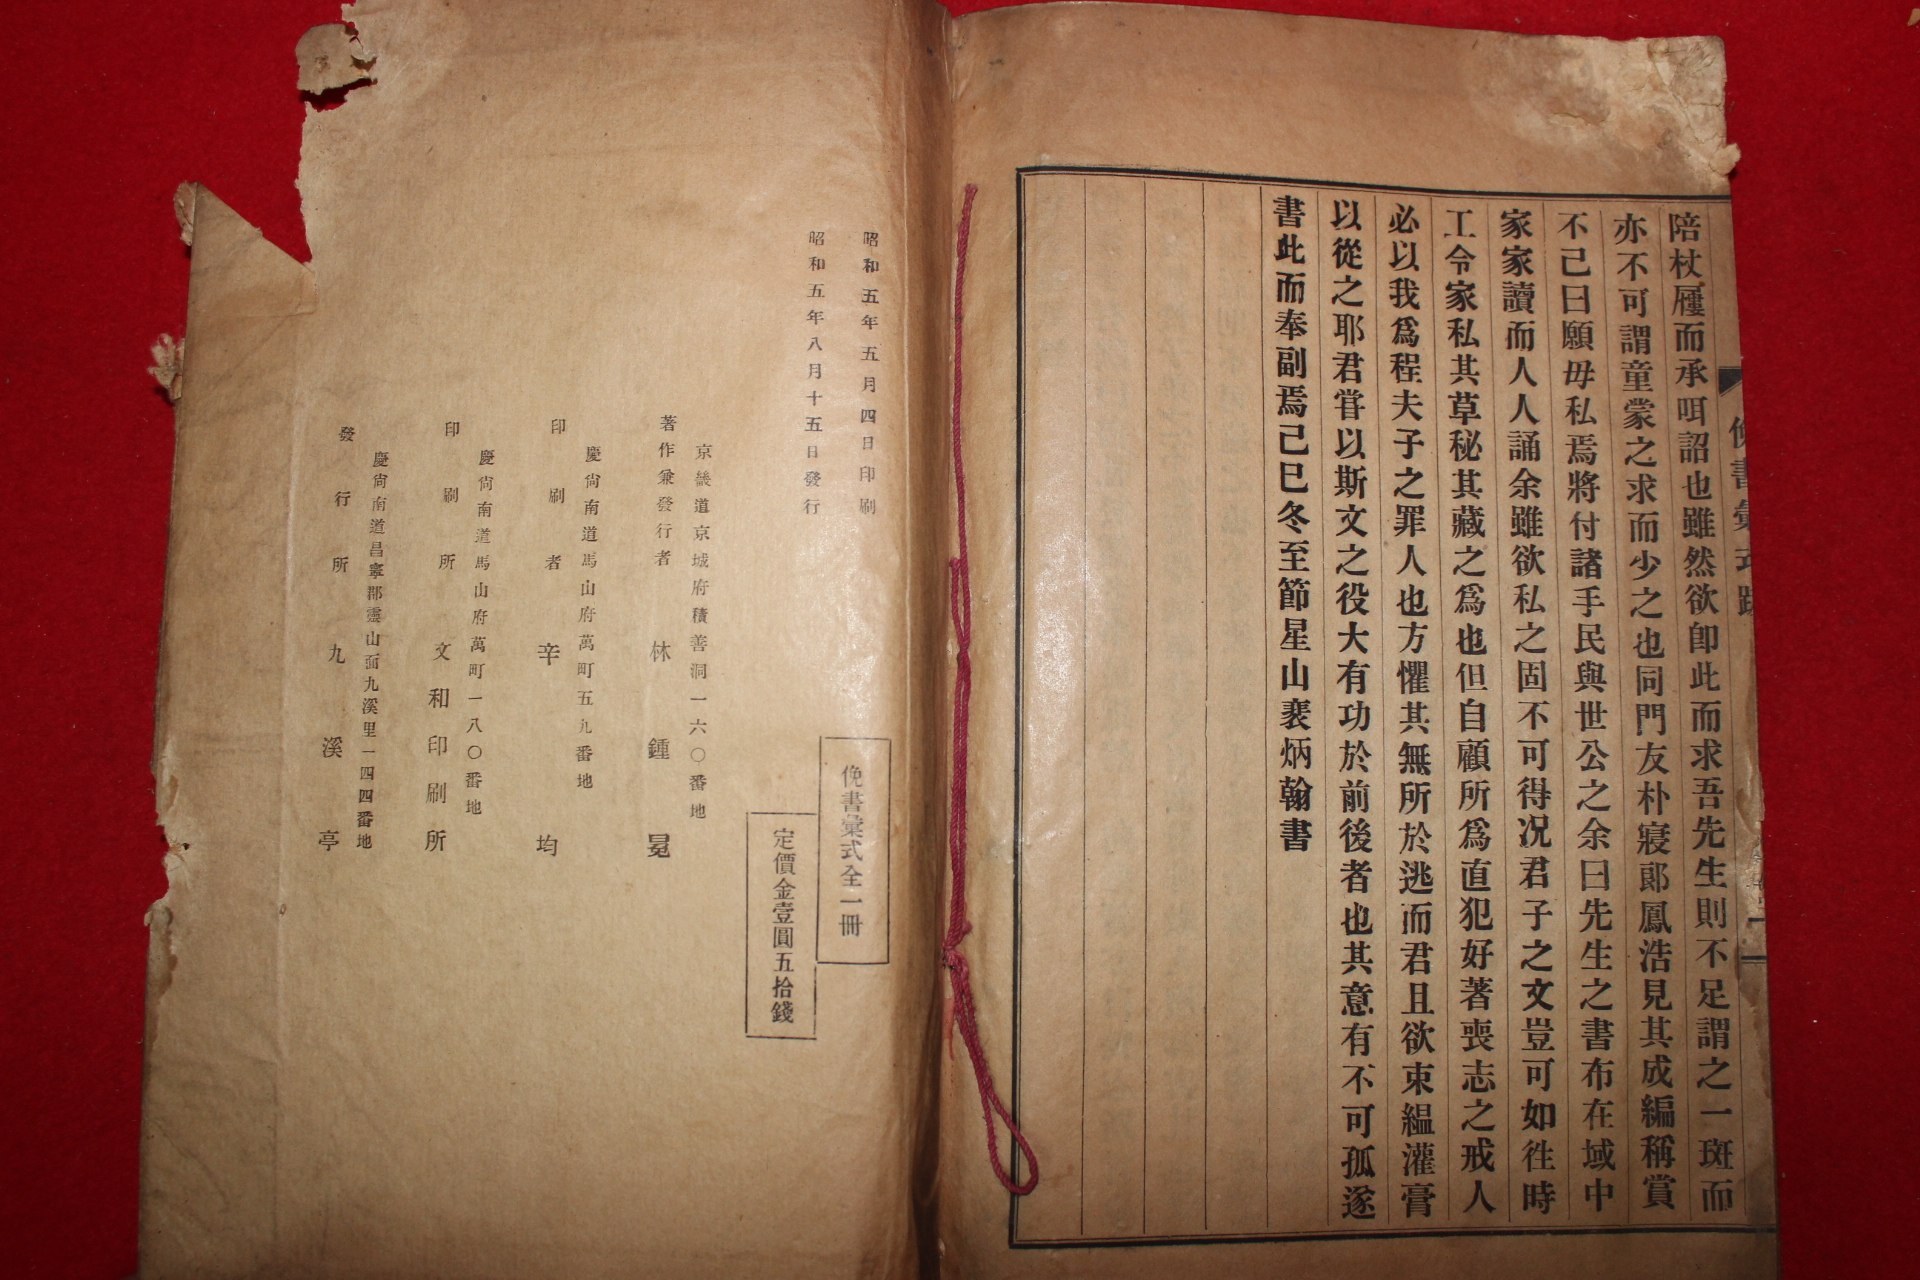 陪杖屨而承咡詔也雖然欲卽此而求吾先生則不足謂之一斑而
亦不可謂童蒙之求而少之也同門友朴寢郞鳳浩見其成編稱賞
不已曰願毋私焉將付諸手民與世公之余曰先生之書布在域中
家家讀而人人誦余雖欲私之固不可得况君子之文豈可如徃時
工令家私其草秘其藏之爲也但自顧所爲直犯好著喪志之戒人
必以我爲程夫子之罪人也方懼其無所於逃而君且欲束縕灌膏
以從之耶君嘗以斯文之役大有功於前後者也其意有不可孤遂
書此而奉副焉己巳冬至節星山裵炳翰書
昭和五年五月四日印刷
昭和五年八月十五日發行
俛書彙式全一冊
定價金壹圓五拾錢
京畿道京城府積善洞一六〇番地
著作兼發行者 林鍾冕
慶尙南道馬山府萬町五九番地
印刷者 辛均
慶尙南道馬山府萬町一八〇番地
印刷所 文和印刷所
慶尙南道昌寧郡靈山面九溪里一四四番地
發行所 九溪亭